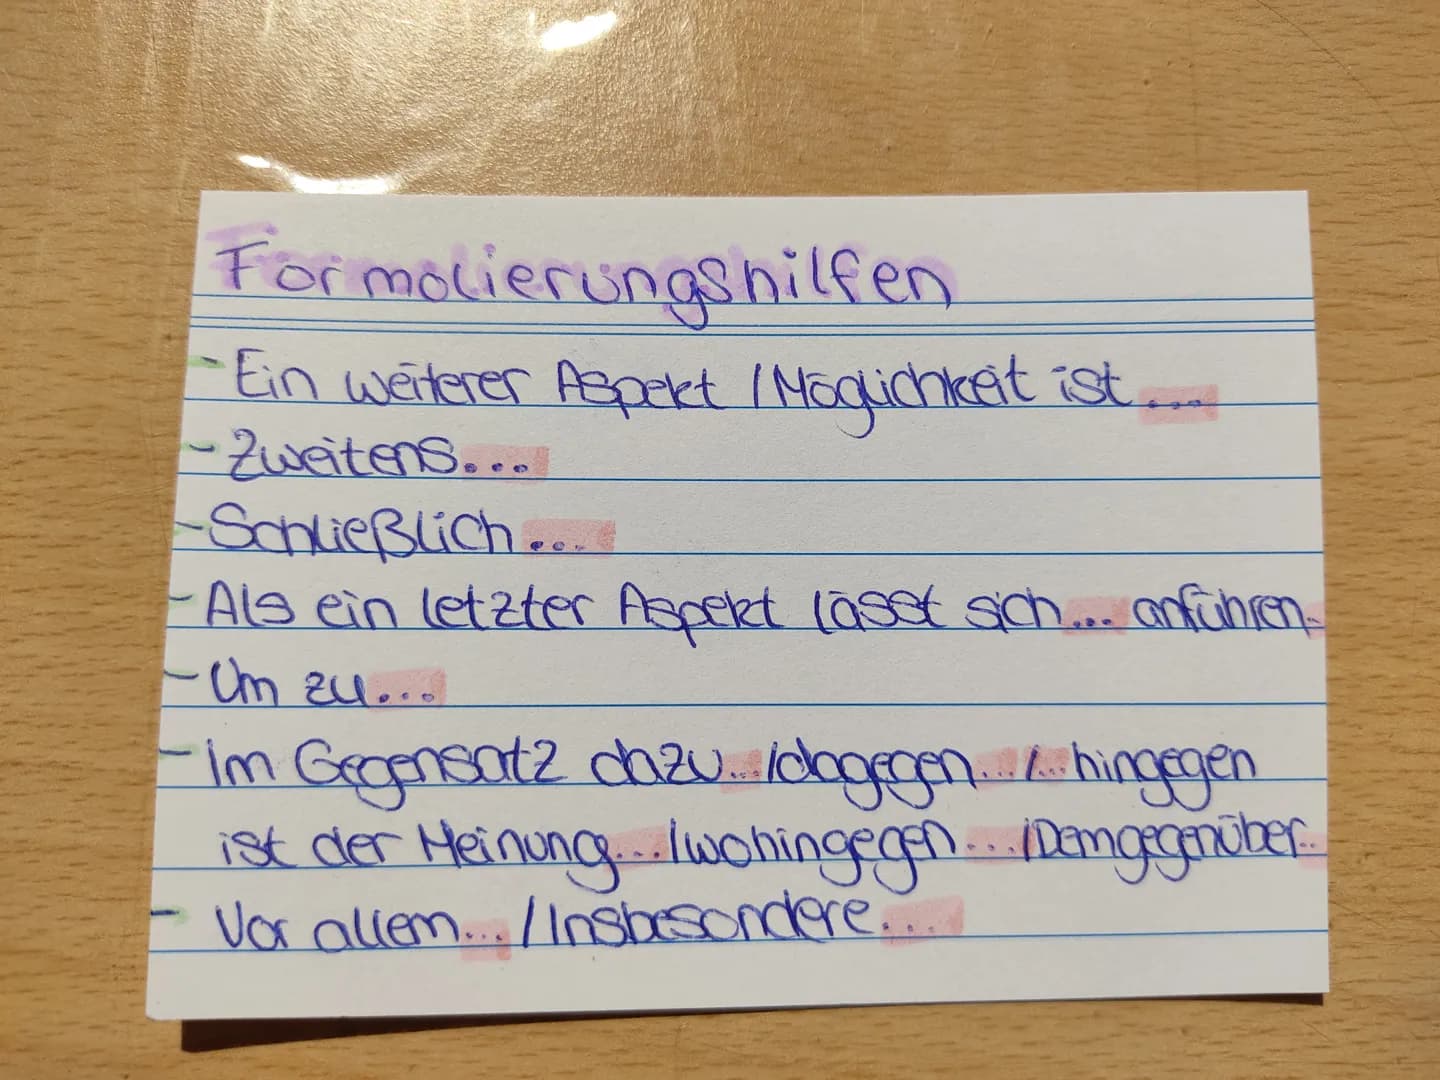 Formolierungshilfen
- Ein weiterer Aspekt / Möglichkeit ist ...
- Zweitens...
- Schließlich ...
- Als ein letzter Aspekt lässt sich ... anführen.
- Um zu ...
- Im Gegensatz dazu ... /dagegen ... / ... hingegen
ist der Meinung ... /wohingegen ... /Demgegenüber..
- Vor allem ... / Insbesondere ...